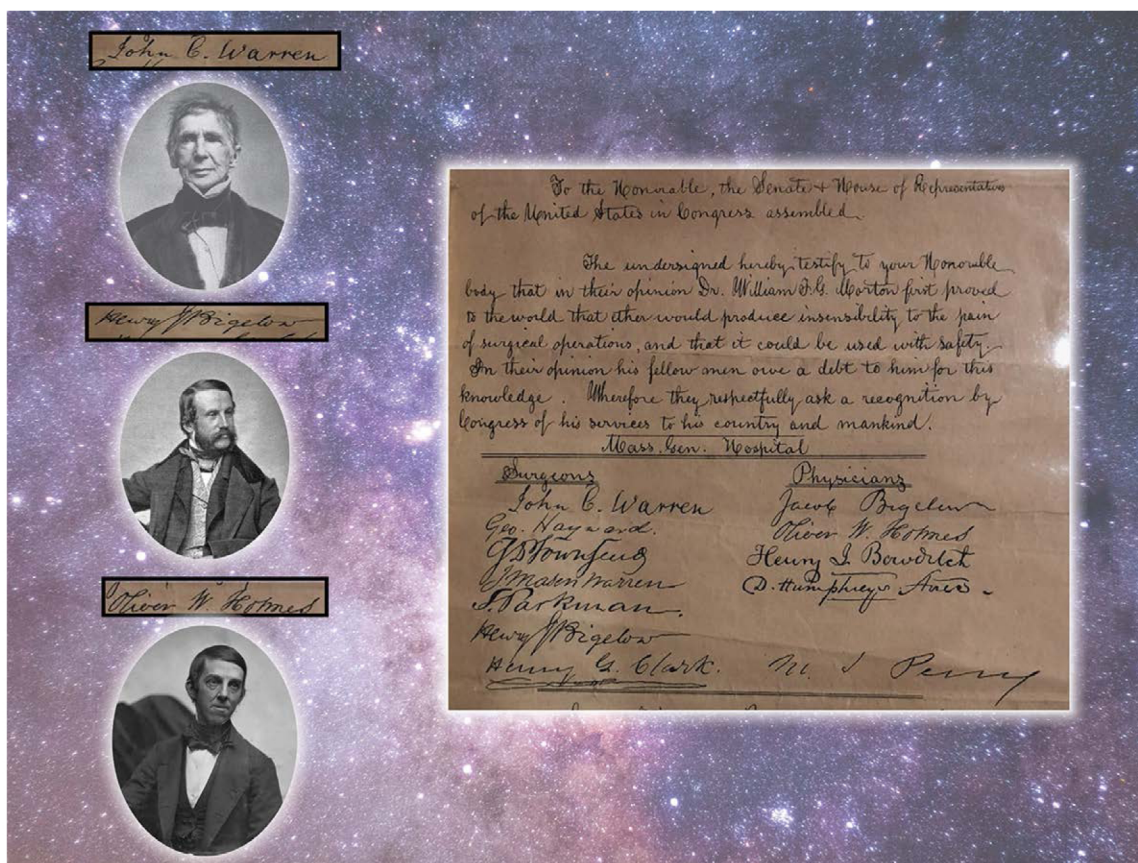 John C. Warren
Henry J Bigelow
Oliver W. Holmes
To the Honorable, the Senate & House of Representatives
of the United States in Congress assembled.
The undersigned hereby testify to your Honorable
body that in their opinion Dr. William T. G. Morton first proved
to the world that ether would produce insensibility to the pain
of surgical operations, and that it could be used with safety.
In their opinion his fellow men owe a debt to him for this
knowledge. Wherefore they respectfully ask a recognition by
Congress of his services to his country and mankind.
Mass. Gen. Hospital
Surgeons
Physicians
John C. Warren
Geo. Hayward.
Townsend
J Mason Warren
S. Parkman.
Henry J Bigelow
Henry G. Clark.
Jacob Bigelow
Oliver W. Holmes
Henry I. Bowditch
D. Humphreys
M. S. Perry